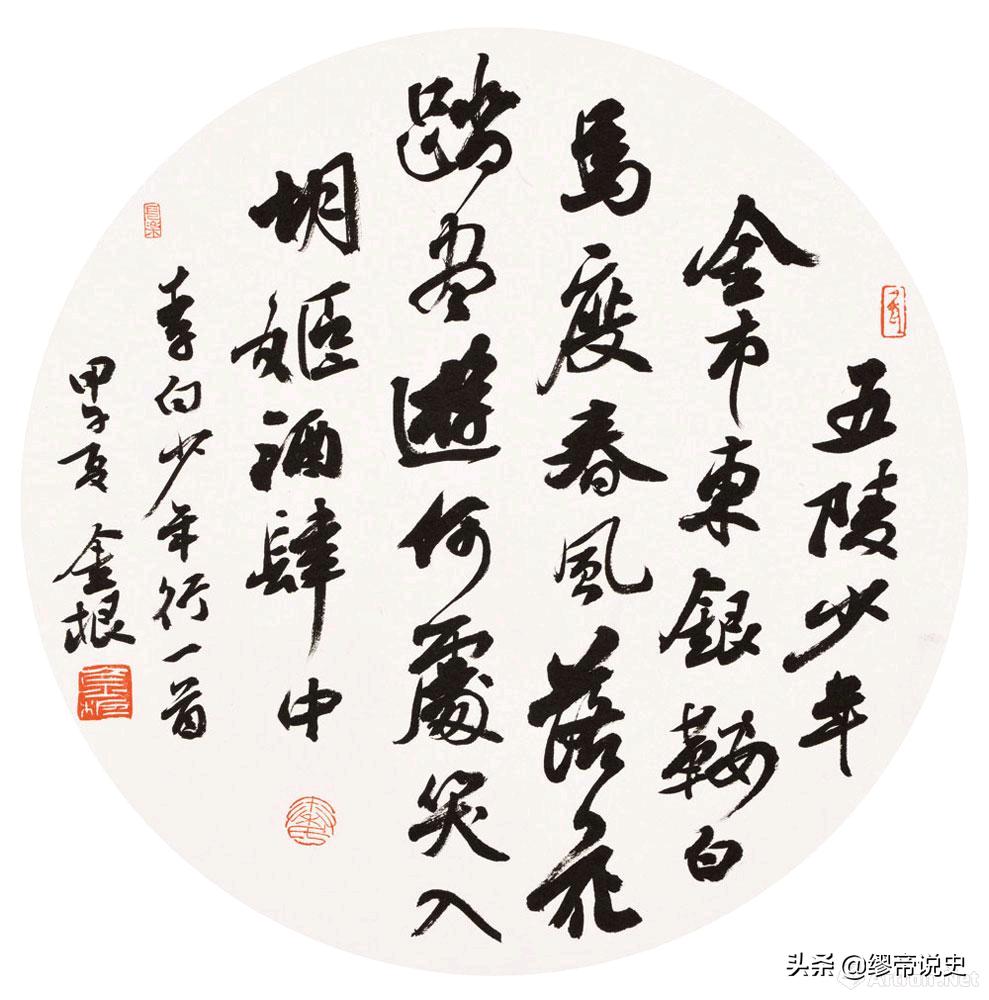 五陵少年
金市東銀鞍白
馬度春風落花
踏尽遊何處笑入
胡姬酒肆中
李白少年行一首
甲午夏 金根
头条 @缪帝说史
Artron.Net